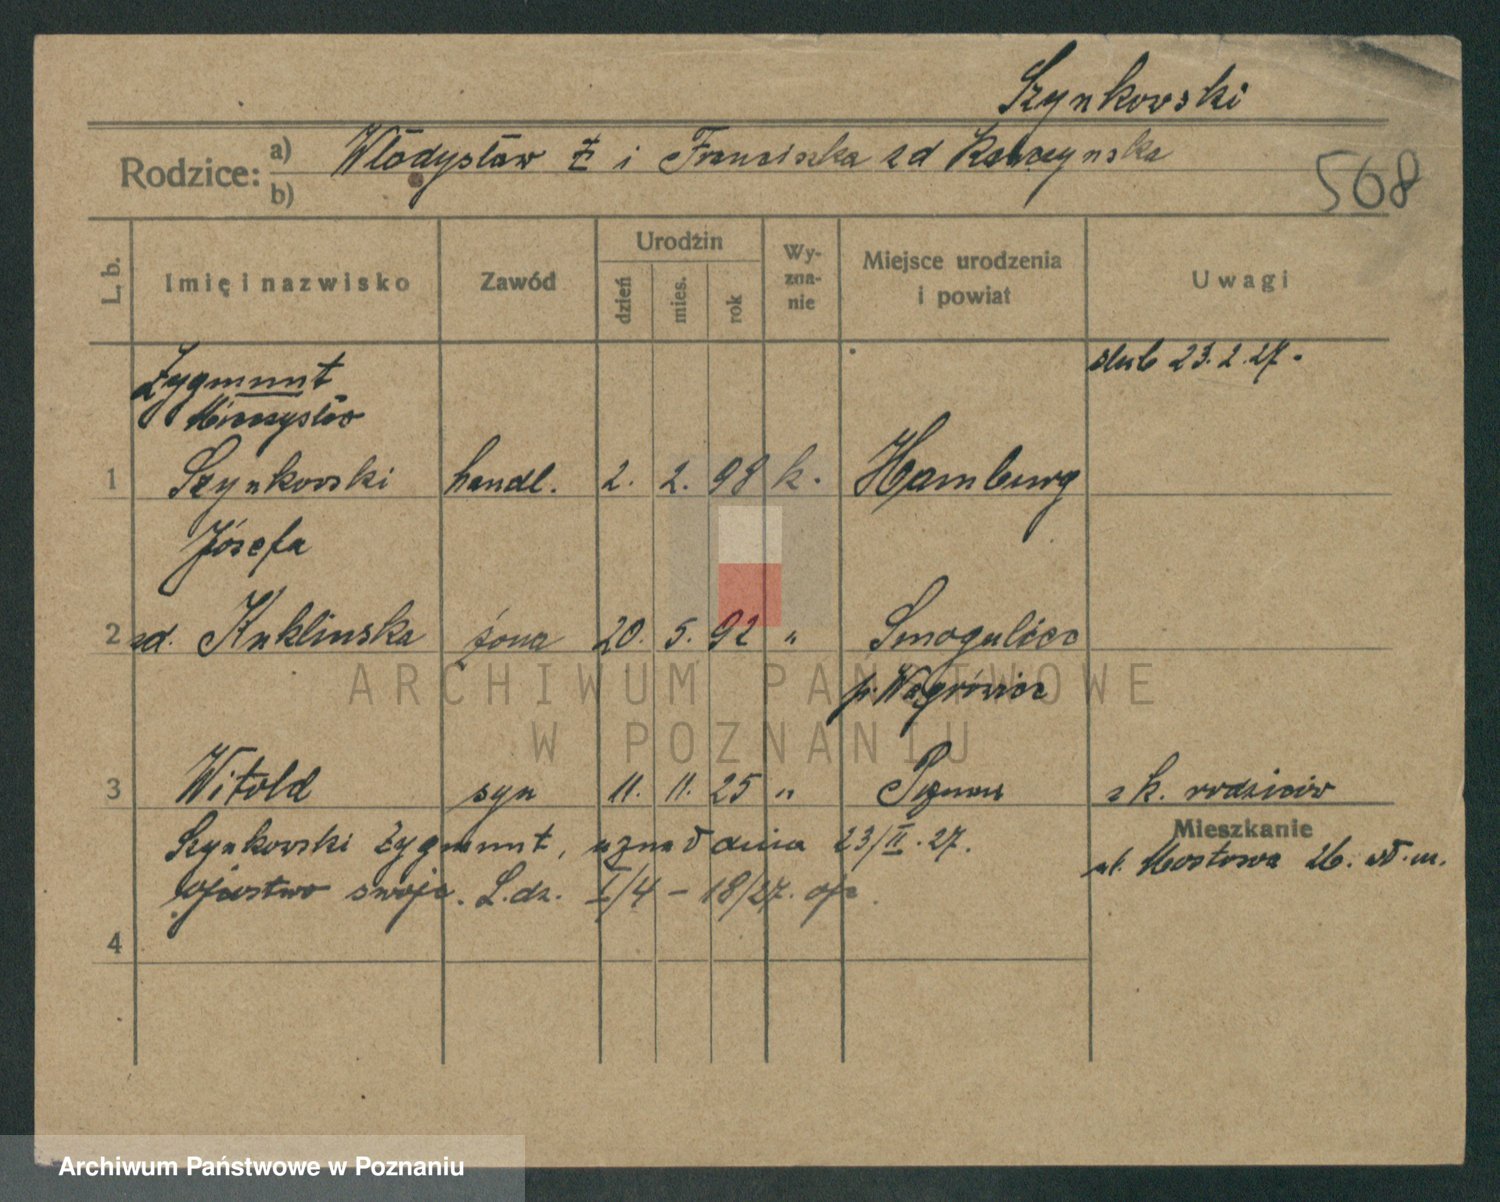 Szynkowski
Rodzice: a) b) Włodysław i Franciszka zd
568
L. b.
Imię i nazwisko
Zawód
Urodzin
dzień
mies.
rok
Wy-
zna-
nie
Miejsce urodzenia
i powiat
Uwagi
ślub 23.2.27.
Zygmunt
Mieczysław
1 Szynkowski handl. 2. 2. 98 k. Hamburg
Józefa
2 zd. Kuklinska żona 20. 5. 92 " Smogulec
p. Wągrówiec
3 Witold syn 11. 11. 25 " Poznań z k. rodziców
Szynkowski Zygmunt, uznał dnia 23/II.27.
ojcostwo swoje. L.dz. I/4 – 18/27.
4
Mieszkanie
ul. Mostowa 26.
ARCHIWUM PAŃSTWOWE
W POZNANIU
Archiwum Państwowe w Poznaniu